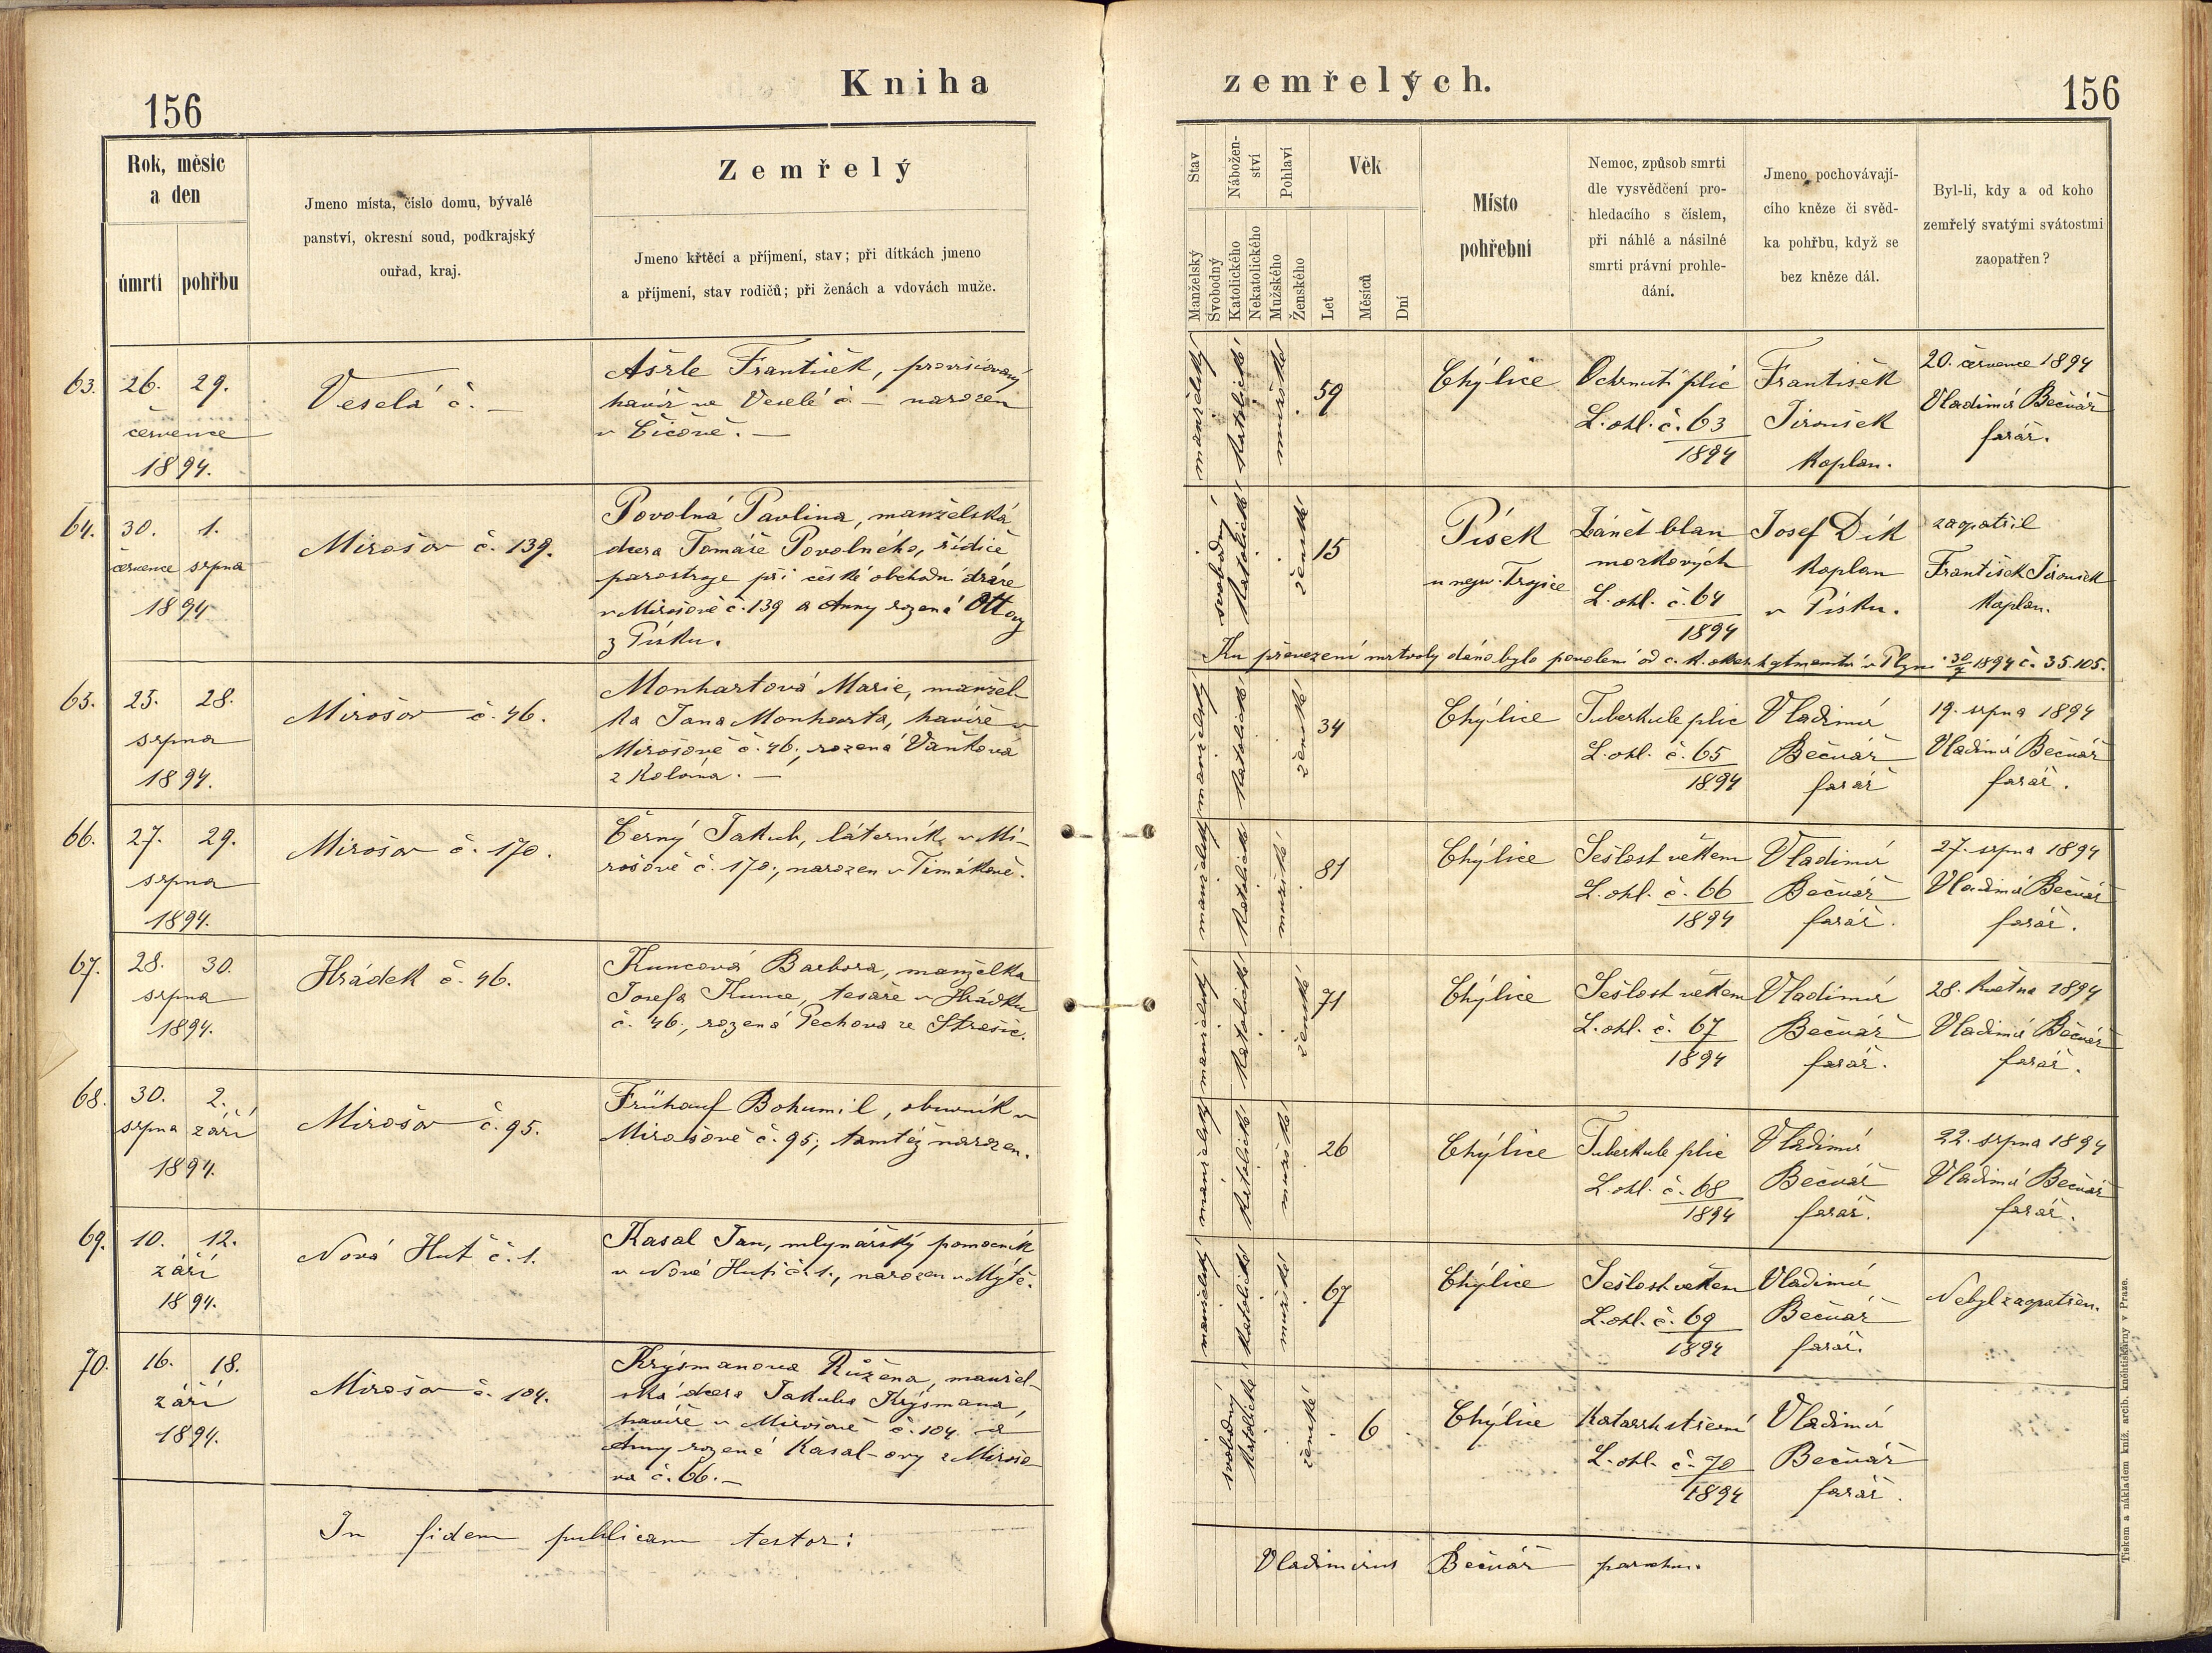 Kniha
zemřelých.
156
156
Rok, měsíc
a den
úmrtí
pohřbu
Jmeno místa, číslo domu, bývalé
panství, okresní soud, podkrajský
ouřad, kraj.
Zemřelý
Jmeno křtěcí a příjmení, stav; při dítkách jmeno
a příjmení, stav rodičů; při ženách a vdovách muže.
Stav
Manželský
Svobodný
Nábožen-
ství
Katolického
Nekatolického
Pohlaví
Mužského
Ženského
Věk
Let
Měsíců
Dní
Místo
pohřební
Nemoc, způsob smrti
dle vysvědčení pro-
hledacího s číslem,
při náhlé a násilné
smrti právní prohle-
dání.
Jmeno pochovávají-
cího kněze či svěd-
ka pohřbu, když se
bez kněze dál.
Byl-li, kdy a od koho
zemřelý svatými svátostmi
zaopatřen?
63. 26. 29.
července
1894.
Veselá č. —
Ašrle František, provisiovaný
havíř ve Veselé č. — narozen
v Číčově. —
manželský
katolické
mužské
59
Chýlice
Ochrnutí plic
L. ohl. č. 63
1894
František
Jiroušek
kaplan.
20. července 1894
Vladimír Bečvář
farář.
64. 30. 1.
července srpna
1894
Mirošov č. 139.
Povolná Pavlina, manželská
dcera Tomáše Povolného, řídiče
parostroje při české obchodní dráze
v Mirošově č. 139 a Anny rozená Ottovy
z Písku.
svobodný
katolické
ženské
15
Písek
u nejsv. Trojice
Zánět blan
morkových
L. ohl. č. 64
1894
Josef Dík
kaplan
v Písku.
zaopatřil
František Jiroušek
kaplan.
Ku převezení mrtvoly dáno bylo povolení od c. k. okres. hejtmanství v Plzni 30/7 1894 č. 35.105.
65. 25. 28.
srpna
1894.
Mirošov č. 46.
Monhartová Marie, manžel-
ka Jana Monharta, havíře v
Mirošově č. 46., rozená Vaňková
z Kolína. —
manželský
katolické
ženské
34
Chýlice
Tuberkule plic
L. ohl. č. 65
1894
Vladimír
Bečvář
farář
19. srpna 1894
Vladimír Bečvář
farář.
66. 27. 29.
srpna
1894.
Mirošov č. 170.
Černý Jakub, láterník v Mi-
rošově č. 170; narozen v Timákově.
manželský
katolické
mužské
81
Chýlice
Sešlost věkem
L. ohl. č. 66
1894
Vladimír
Bečvář
farář.
27. srpna 1894
Vladimír Bečvář
farář.
67. 28. 30.
srpna
1894.
Hrádek č. 46.
Kuncová Barbora, manželka
Josefa Kunce, tesaře v Hrádku
č. 46., rozená Pechova ze Strašic.
manželský
katolické
ženské
71
Chýlice
Sešlost věkem
L. ohl. č. 67
1894
Vladimír
Bečvář
farář.
28. května 1894
Vladimír Bečvář
farář.
68. 30. 2.
srpna září
1894.
Mirošov č. 95.
Frühauf Bohumil, obuvník v
Mirošově č. 95; tamtéž narozen.
manželský
katolické
mužské
26
Chýlice
Tuberkule plic
L. ohl. č. 68
1894
Vladimír
Bečvář
farář.
22. srpna 1894
Vladimír Bečvář
farář.
69. 10. 12.
září
1894.
Nová Huť č. 1.
Kasal Jan, mlynářský pomocník
v Nové Huti č. 1., narozen v Mýtě.
manželský
katolické
mužské
67
Chýlice
Sešlost věkem
L. ohl. č. 69
1894
Vladimír
Bečvář
farář.
Nebyl zaopatřen.
70. 16. 18.
září
1894.
Mirošov č. 104.
Krýsmanova Růžena, manžel-
ská dcera Jakuba Krýsmana,
havíře v Mirošově č. 104 a
Anny rozené Kasal-ovy z Mirošo-
va č. 66. —
svobodný
katolické
ženské
6
Chýlice
Katarrh střevní
L. ohl. č. 70
1894
Vladimír
Bečvář
farář.
In fidem publicam testor:
Vladimirus Bečvář parochus.
Tiskem a nákladem kníž. arcib. knihtiskárny v Praze.